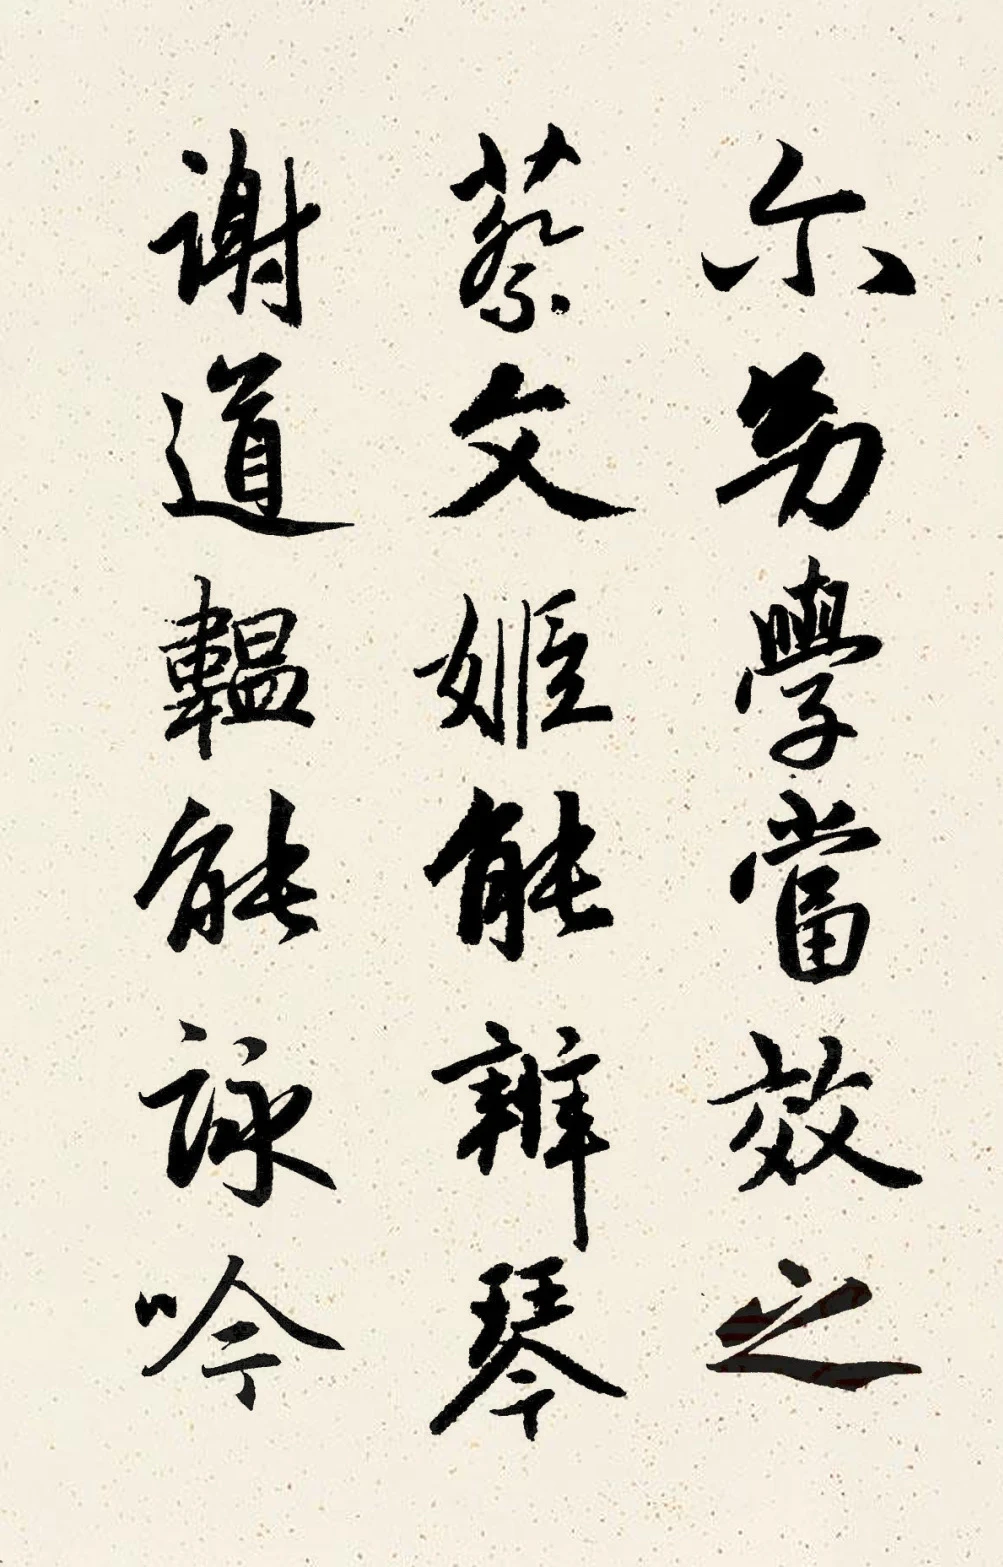 尔幼學當效之
蔡文姬能辨琴
謝道韞能詠吟